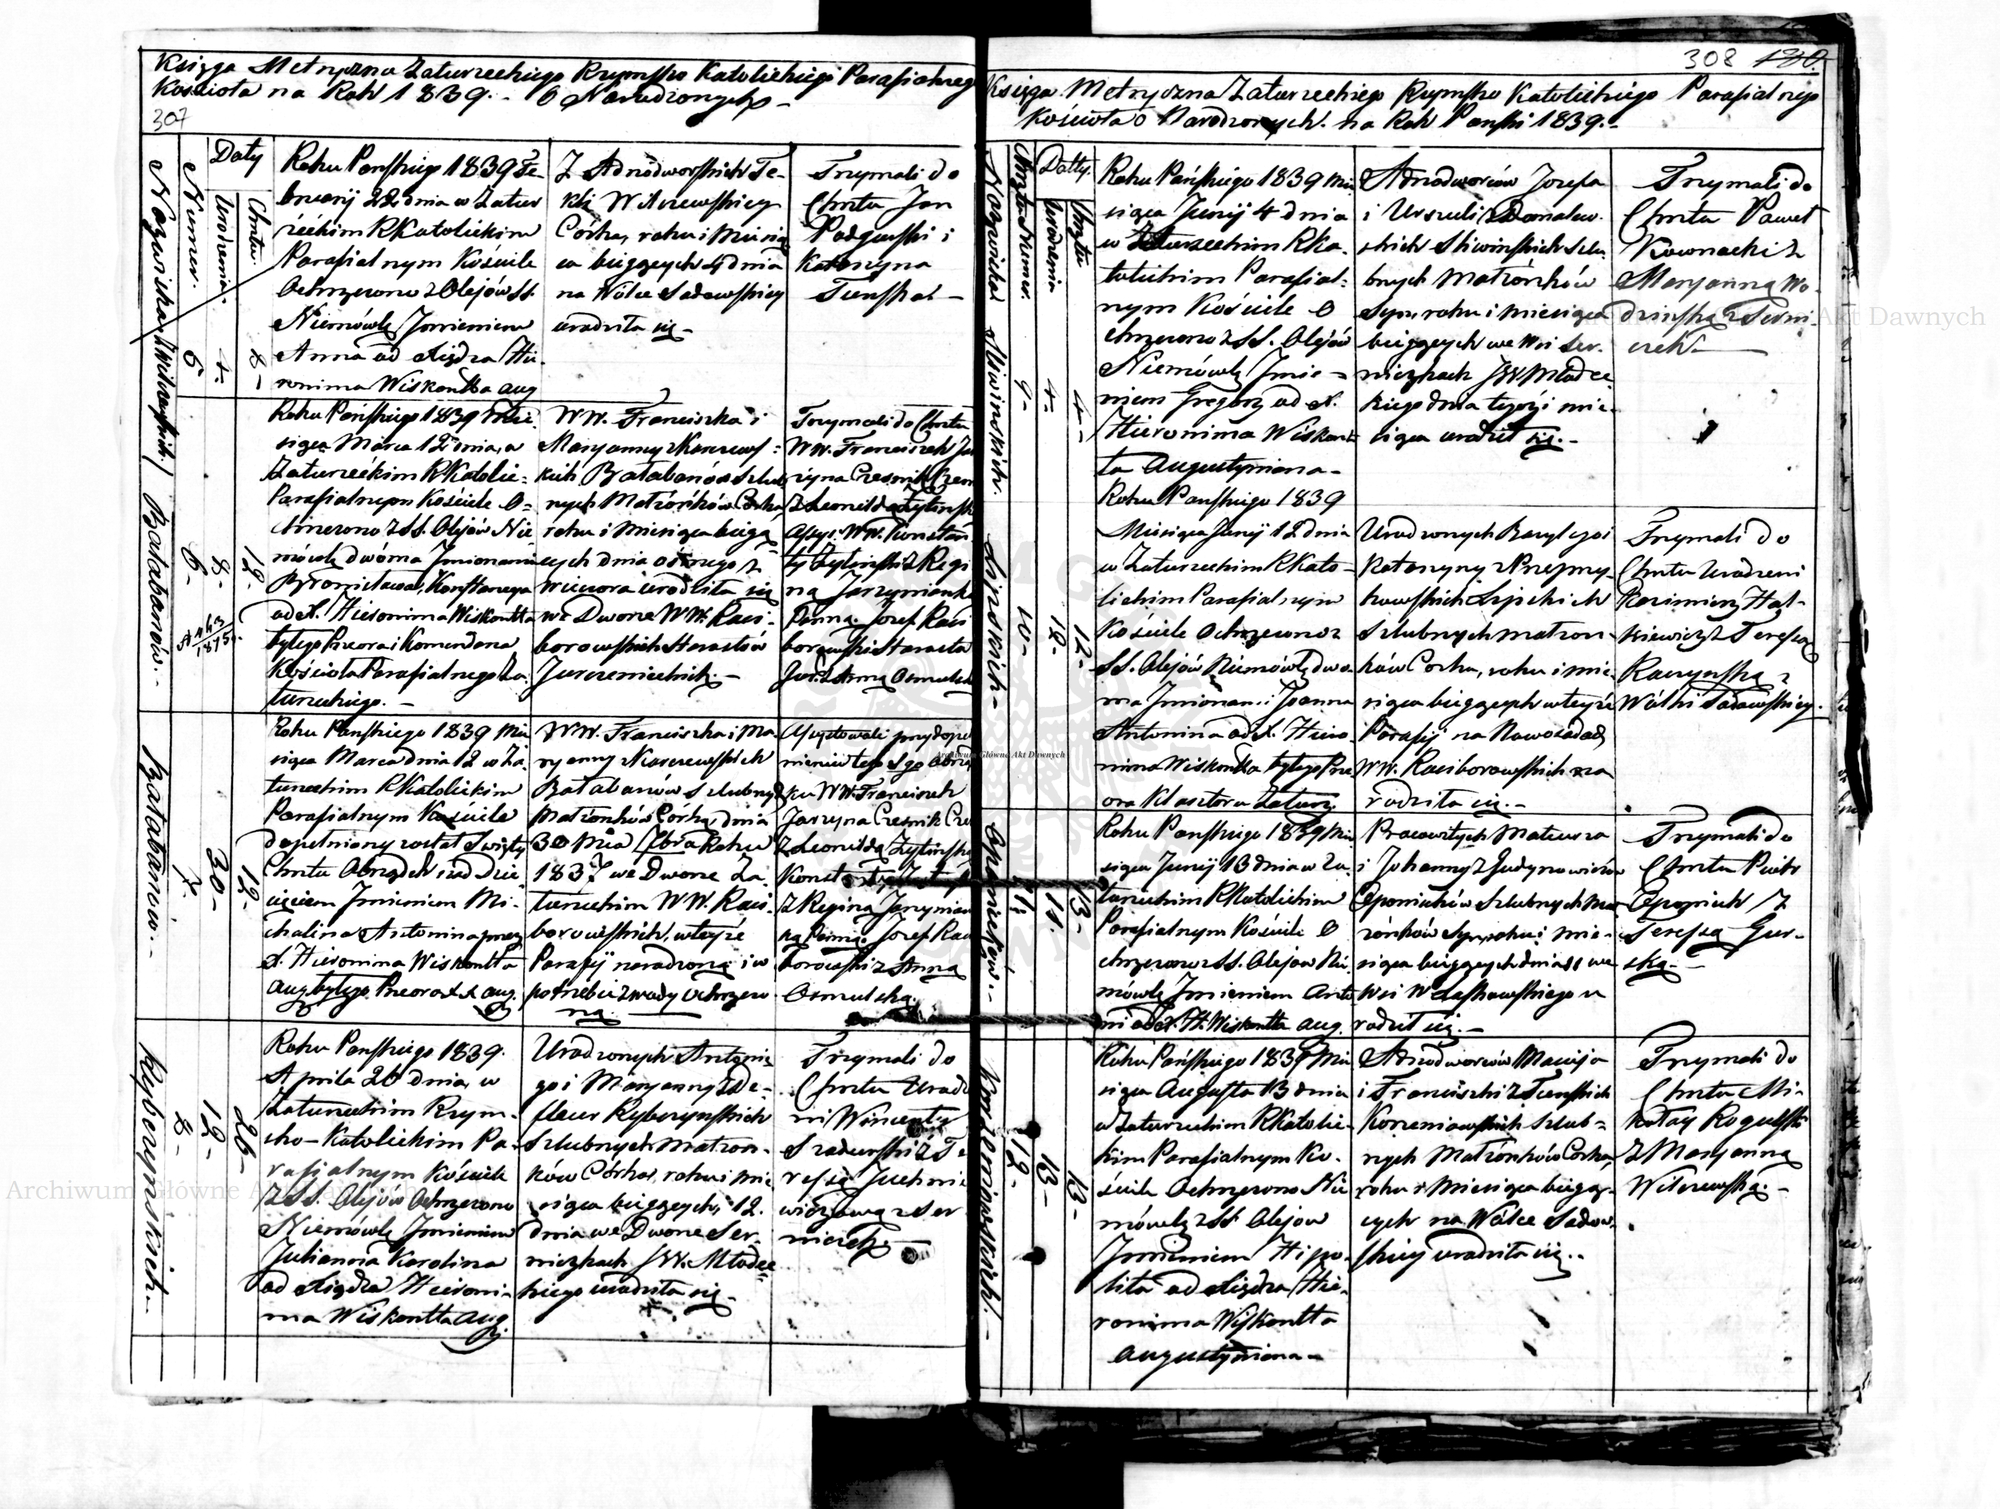 Księga Metryczna Zaturzeckiego Rzymsko Katolickiego Parafialnego
Kościoła na Rok 1839. - O Narodzonych -
307
Daty
Nazwiska
Numer.
Urodzenia.
Chrztu.
5
4.
8-
Roku Pańskiego 1839 Fe-
bruarij 22 dnia w Zatur
zeckim RKatolickim
Parafialnym Kościele
Ochrzczono z Olejów SS.
Niemówlę Imieniem
Anna od Xiędza Hie
ronima Wiskontta aug
Z Adnodworskich Te-
kli Witczewskiey
Córka, roku i miesią
ca bieżących 4 dnia
na Wólce Sadowskiey
urodziła się -
Trzymali do
Chrztu Jan
Podgurski i
Katarzyna
Tunska -
Bałabanów. -
6-
8-
12-
A 463
1875
Roku Pańskiego 1839 Mie
siąca Marca 12 dnia, w
Zaturzeckim RKatolic-
Parafialnym Kościele O-
chrzczono z SS. Olejów Nie
mówlę dwóma Imionami
Bronisława, Konstancya
od X. Hieronima Wiskontta
byłego Przeora i Komendarza
Kościoła Parafialnego Za-
turzeckiego. -
WW. Franciszka i
Maryanny z Karczews-
kich Bałabanów Szlub
nych Małżonków Córka,
roku i Miesiąca bieżą
cych dnia ósmego z
wieczora urodziła się
we Dworze WW. Raci-
borowskich Starostów
Jurczenickich. -
Trzymali do Chrztu
WW. Franciszek Ja
rzyna Czesnik Czer
z Leonildą Żylińsk
Assys. WW. Konstan
ty Żyliński z Regi
ną Jarzymianką
Panną. Józef Raci
borowski Starosta
Jur. z Anną Osmulsk
Bałabanów. -
7-
30-
12-
Roku Pańskiego 1839 Mie
siąca Marca dnia 12 w Za-
turzeckim RKatolickim
Parafialnym Kościele
dopełniony został Święty
Chrztu Obrządek nad Dzie
cięciem Imieniem Mi-
chalina Antonina przez
X. Hieronima Wiskontta
aug. byłego Przeora XX aug.
WW. Franciszka i Ma
ryanny z Karczewskich
Bałabanów Szlubnych
Małżonków Córką, dnia
30 Mca 7bra Roku
1837 we Dworze Za-
turzeckim WW. Raci-
borowskich, w teyże
Parafij narodzoną i w
potrzebie z wody ochrzczo
na. -
Assystowali przy dopeł
nieniu tego Sgo Obrząd
ku WW. Franciszek
Jarzyna Czesnik Cze
z Leonildą Żylińską
Konstanty Żyliński
z Reginą Jarzymian
ką Panną. Józef Raci
borowski z Anną
Osmulską.
Ryberzynskich. -
8-
12-
26-
Roku Pańskiego 1839.
Aprila 26 dnia, w
Zaturzeckim Rzym-
sko-Katolickim Pa-
rafialnym Kościele
z SS. Olejów Ochrzczono
Niemówlę Imieniem
Julianna Karolina
od Xiędza Hieroni-
ma Wiskontta aug.
Urodzonych Antonie
go i Maryanny z De-
fleur Ryberzynskich
Szlubnych Małżon-
ków Córka, roku i mie
siąca bieżących, 12.
dnia we Dworze Ser-
niczkach JW. Młodec-
kiego urodziła się -
Trzymali do
Chrztu Urodze
ni Wincenty
Szadurski z Te
ressą Juchni
wiczową z Ser
niczek. -
308 180.
Księga Metryczna Zaturzeckiego Rzymsko Katolickiego Parafialnego
Kościoła o Narodzonych na Rok Pański 1839. -
Daty.
Nazwiska
Numer.
Urodzenia
Chrztu
Sliwinskich.
9-
4-
4-
Roku Pańskiego 1839 Mie
siąca Junij 4 dnia
w Zaturzeckim RKa-
tolickim Parafial-
nym Kościele O
chrzczono z SS. Olejów
Niemówlę Imie-
niem Gregorz od X.
Hieronima Wiskont
ta Augustyniana -
Adnodworców Jozefa
i Urszuli z Domalew-
skich Sliwinskich Szlu
bnych Małżonków
Syn, roku i miesiąca
bieżących we Wsi Ser-
niczkach JW Młodec
kiego dnia tegoż i mie-
siąca urodził się. -
Trzymali do
Chrztu Paweł
Kownacki z
Maryanną Wo-
dzinską z Serni-
czek. -
Lipskich -
10-
12.
12-
Roku Pańskiego 1839
Miesiąca Junij 12 dnia
w Zaturzeckim RKato-
lickim Parafialnym
Kościele Ochrzczono z
SS. Olejów Niemówlę dwó-
ma Imionami Joanna
Antonina od X. Hiero-
nima Wiskontta byłego Prze
ora Klasztoru Zaturz.
Urodzonych Bazylego i
Katarzyny z Przezmy-
kowskich Lipskich
Szlubnych małżon-
ków Córka, roku i mie-
siąca bieżących w teyże
Parafij na Nowosadach
WW. Raciborowskich na
rodziła się. -
Trzymali do
Chrztu Urodzeni
Kazimierz Hał-
kiewicz z Teressą
Raczynską z
Wólki Sadowskiey.
Oponiuków. -
11.
11.
13-
Roku Pańskiego 1839 Mie
siąca Junij 13 dnia w Za-
turzeckim RKatolickim
Parafialnym Kościele O
chrzczono z SS. Olejów Nie
mówlę Imieniem Anto
ni od X. H. Wiskontta aug.
Pracowitych Mateusza
i Johanny z Gudynowiczów
Oponiuków Szlubnych Mał
żonków Syn, roku i mie-
siąca bieżących dnia 11 we
Wsi W Laskowskiego u
rodził się. -
Trzymali do
Chrztu Piotr
Oponiuk z
Teressą Gur-
ską. -
Korzeniowskich. -
12-
13-
13-
Roku Pańskiego 1839 Mie
siąca Augusta 13 dnia
w Zaturzeckim RKatolic-
kim Parafialnym Ko-
ściele Ochrzczono Nie
mówlę z SS. Olejów
Imieniem Hipo-
lita od Xiędza Hie-
ronima Wiskontta
Augustyniana -
Adnodworców Macieja
i Franciszki z Tunskich
Korzeniowskich Szlub-
nych Małżonków Córka,
roku i Miesiąca bieżą-
cych na Wólce Sadow-
skiey urodziła się. -
Trzymali do
Chrztu Mi-
kołay Rogulski
z Maryanną
Witczewską. -
Archiwum Główne Akt Dawnych